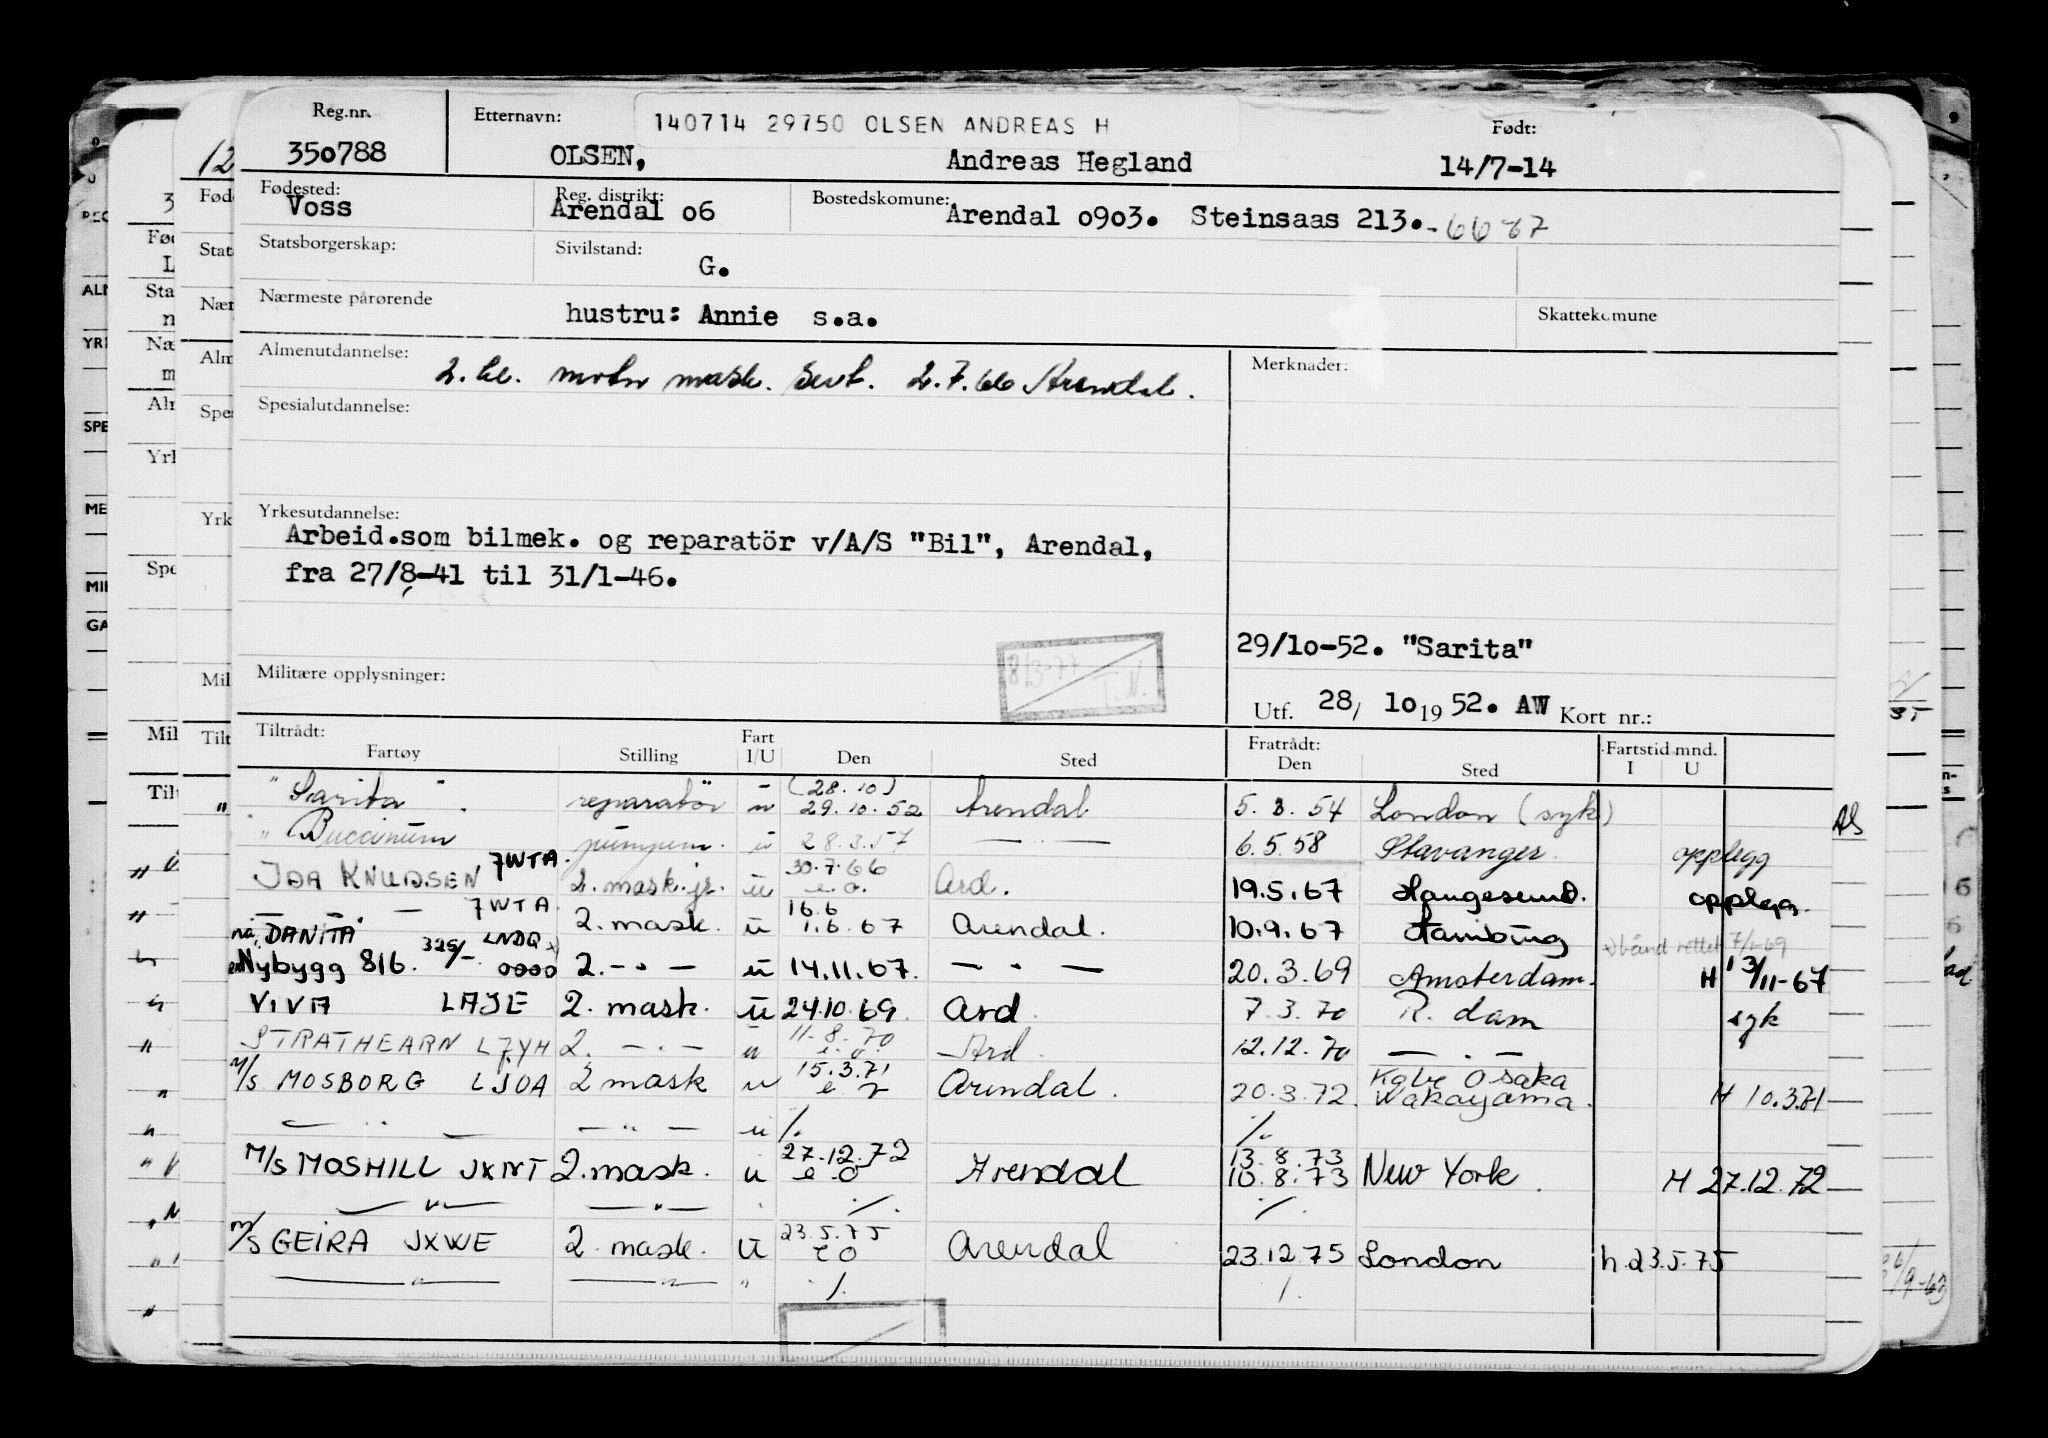 Reg.nr. Etternavn: 140714 29750 OLSEN ANDREAS H Født:
350788 OLSEN, Andreas Hegland 14/7-14
Fødested: Reg. distrikt: Bostedskomune:
Voss Arendal 06 Arendal 0903. Steinsaas 213.
Statsborgerskap: Sivilstand:
G.
Nærmeste pårørende hustru: Annie s.a. Skattekomune
Almenutdannelse: Merknader:
2. kl. motor mask. sert. 2.7.66 Arendal.
Spesialutdannelse:
Yrkesutdannelse:
Arbeid.som bilmek. og reparatör v/A/S "Bil", Arendal,
fra 27/8-41 til 31/1-46.
29/10-52. "Sarita"
8/3-77 T.N.
Militære opplysninger:
Utf. 28/ 10 19 52. AW Kort nr.:
Tiltrådt: Fratrådt: Fartstid mnd.
Fartøy Stilling Fart I/U Den Sted Den Sted I U
"Sarita". reparatör u (28.10) 29.10.52 Arendal 5.3.54 London (syk)
"Buccinum pumpem. u 28.3.57 — " — 6.5.58 Stavanger. opplegg
IDA KNUDSEN 7WTA. 2. mask.jr. u 30.7.66 e.o. Ard. 19.5.67 Haugesund. opplegg.
— " — 7WTA 2. mask. u 16.6 1.6.67 Arendal. 10.9.67 Hamburg
nå DANITA LNDQ
Nybygg 816. 325/- 0000 2. — " — u 14.11.67. — " — 20.3.69 Amsterdam. H 13/11-67
VIVA LAJE 2. mask. u 24.10.69. Ard. 7.3.70 R.dam syk
STRATHEARN LJYH 2. — " — u 11.8.70 e.o. Ard. 12.12.70 — " —
M/S MOSBORG LJOA 2 mask u 15.3.71 Arendal. 20.3.72. Kobe Osaka Wakayama. H 10.3.71
— " — — " — u %. %.
M/S MOSHILL JXNT 2.mask. u 27.12.72 e.o Arendal 13.8.73 10.8.73 New York. H 27.12.72
— " — — " — %. %.
M/S GEIRA JXWE 2. mask. u 23.5.75 e o Arendal 23.12.75 London h.23.5.75
— " — — " — " %.